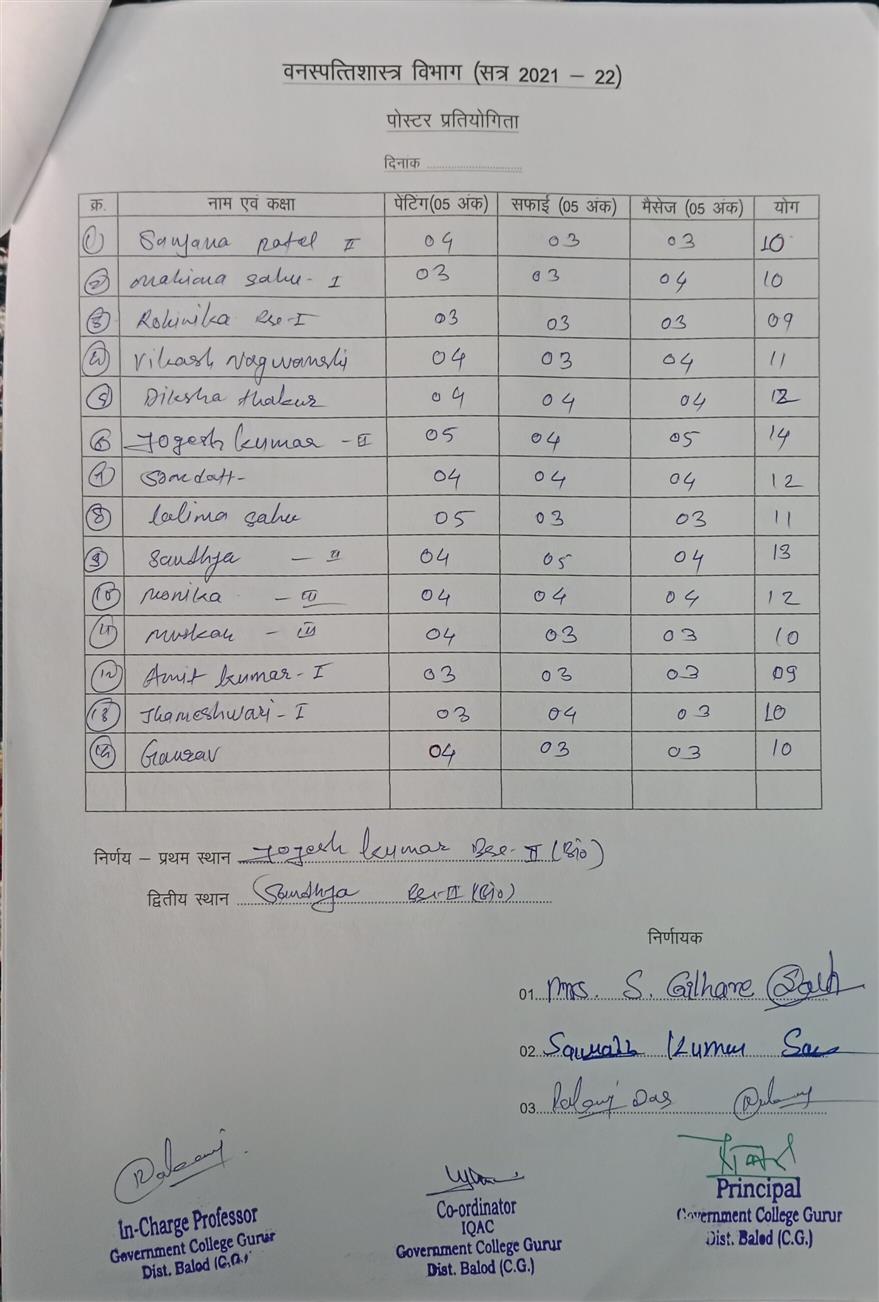 वनस्पत्तिशास्त्र विभाग (सत्र 2021 – 22)
पोस्टर प्रतियोगिता
दिनांक
क्र. नाम एवं कक्षा पेटिंग(05 अंक) सफाई (05 अंक) मैसेज (05 अंक) योग
1 Sanjana Patel II 04 03 03 10
2 Mahima Sahu - I 03 03 04 10
3 Rohinika Bsc-I 03 03 03 09
4 Vikash Nagwanshi 04 03 04 11
5 Diksha Thakur 04 04 04 12
6 Jogesh Kumar - II 05 04 05 14
7 Somedatt- 04 04 04 12
8 Lalima Sahu 05 03 03 11
9 Sandhya - II 04 05 04 13
10 Monika - III 04 04 04 12
11 Muskan - III 04 03 03 10
12 Amit Kumar - I 03 03 03 09
13 Jhameshwari - I 03 04 03 10
14 Gaurav 04 03 03 10
निर्णय – प्रथम स्थान Jogesh Kumar Bsc- II (Bio)
द्वितीय स्थान Sandhya Bsc-II (Bio)
निर्णायक
01. Mrs. S. Gilhare
02. Saurabh Kumar
03. Das
In-Charge Professor
Government College Gurur
Dist. Balod (C.G.)
Co-ordinator
IQAC
Government College Gurur
Dist. Balod (C.G.)
Principal
Government College Gurur
Dist. Balod (C.G.)